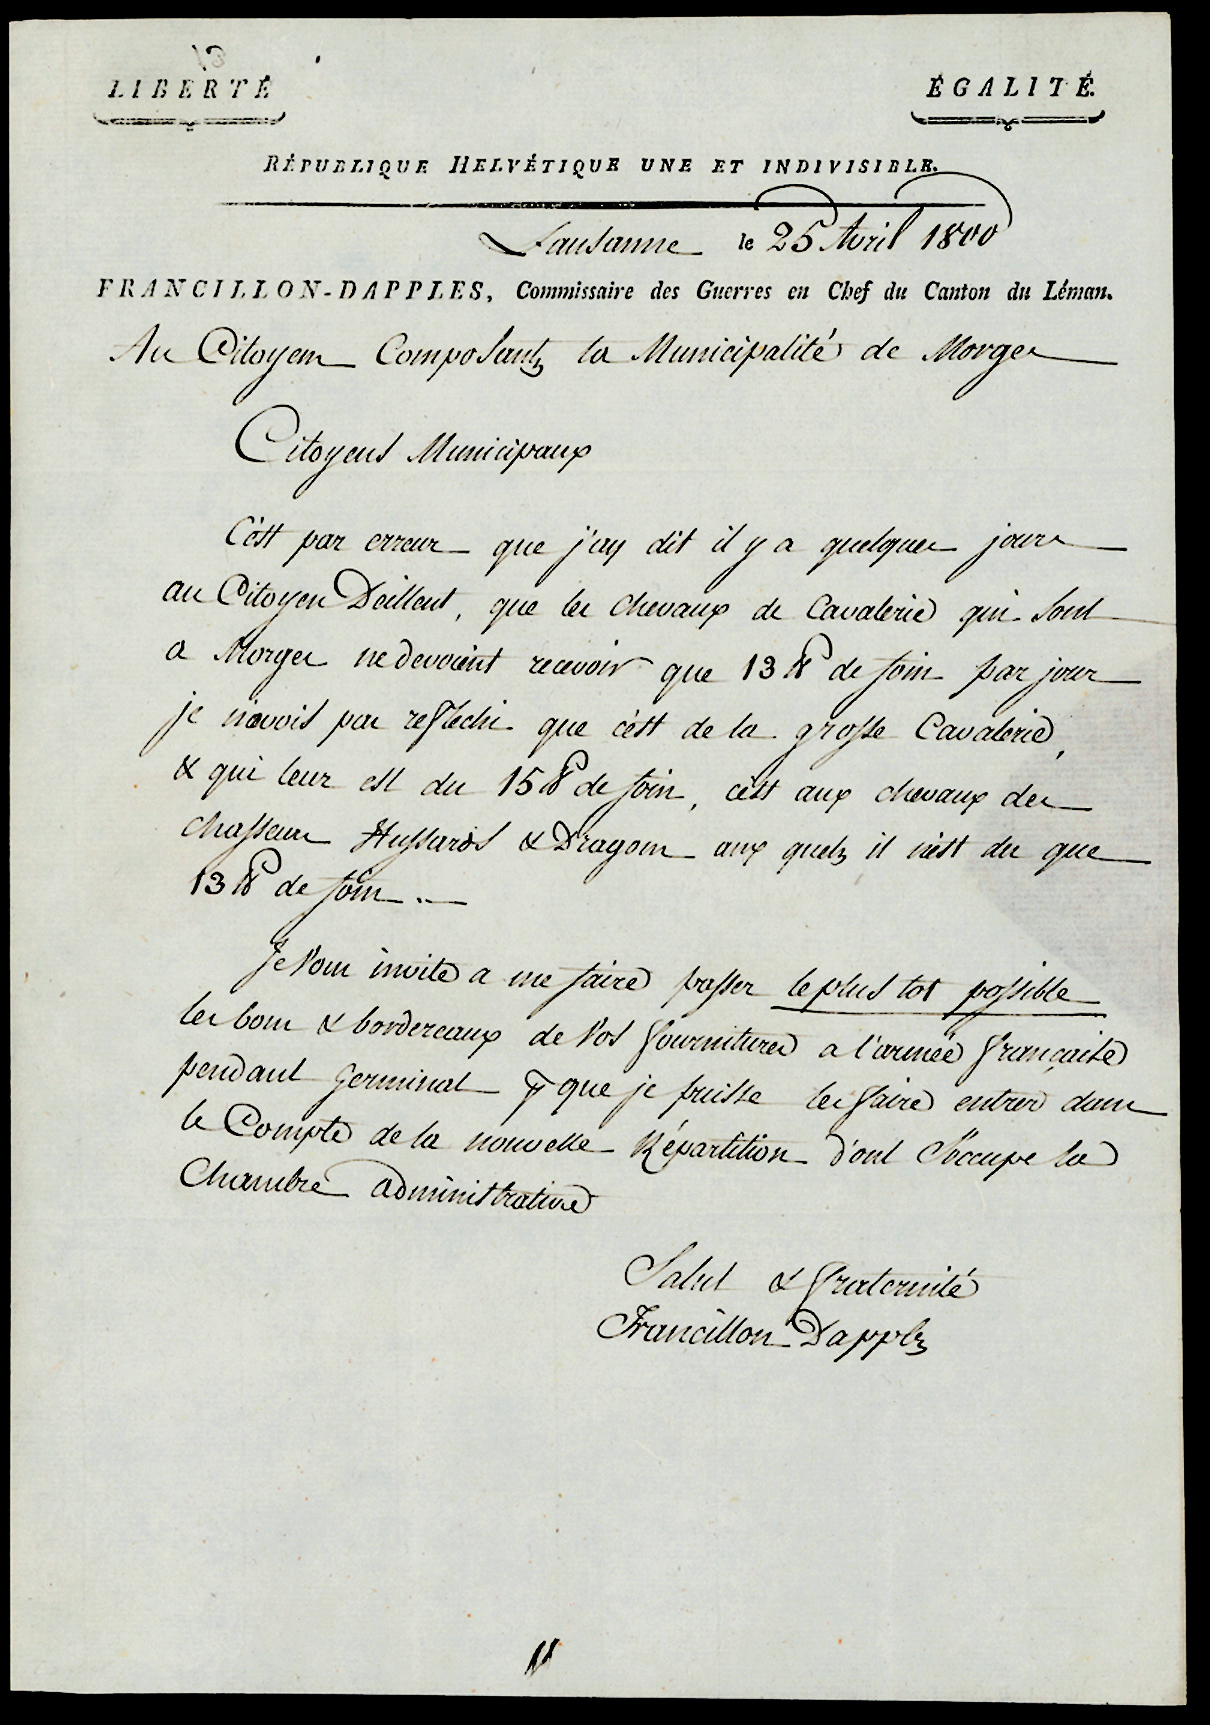 13
LIBERTÉ
ÉGALITÉ.
RÉPUBLIQUE HELVÉTIQUE UNE ET INDIVISIBLE.
Lausanne le 25 Avril 1800
FRANCILLON-DAPPLES, Commissaire des Guerres en Chef du Canton du Léman.
Au Citoyens Composantz la Municipalité de Morges
Citoyens Municipaux
C'est par erreur que j'ay dit il y a quelques jours
au Citoyen que les chevaux de Cavalerie qui sont
a Morges ne devoient recevoir que 13 ℔ de foin par jour
je n'avois pas reflechi que c'est de la grosse Cavalerie,
& qui leur est du 15 ℔ de foin, c'est aux chevaux des
chasseurs Hussards & Dragons aux quelz il n'est du que
13 ℔ de foin.
Je Vous invite a me faire passer le plus tot possible
les bons & bordereaux de Vos fournitures a l'armée française
pendant Germinal que je puisse les faire entrer dans
le Compte de la nouvelle Répartition d'ont S'occupe la
Chambre administrative
Salut & fraternité
Francillon Dapples